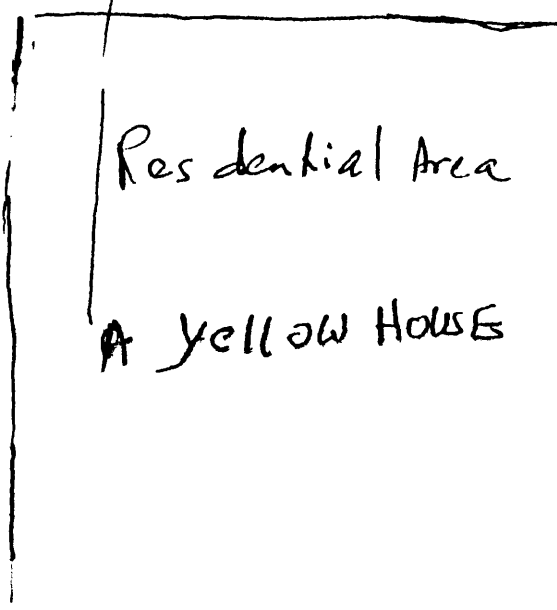 Residential Area
A Yellow HOUSE